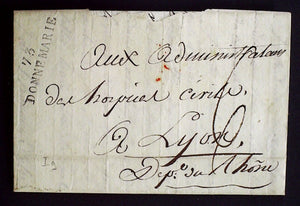 73
DONNEMARIE
aux Administrateurs
des hospices civils
a Lyon
Dep.t du Rhône